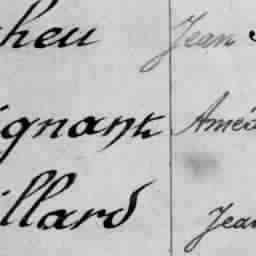 heu Jean
gnant Amé
illard Jean